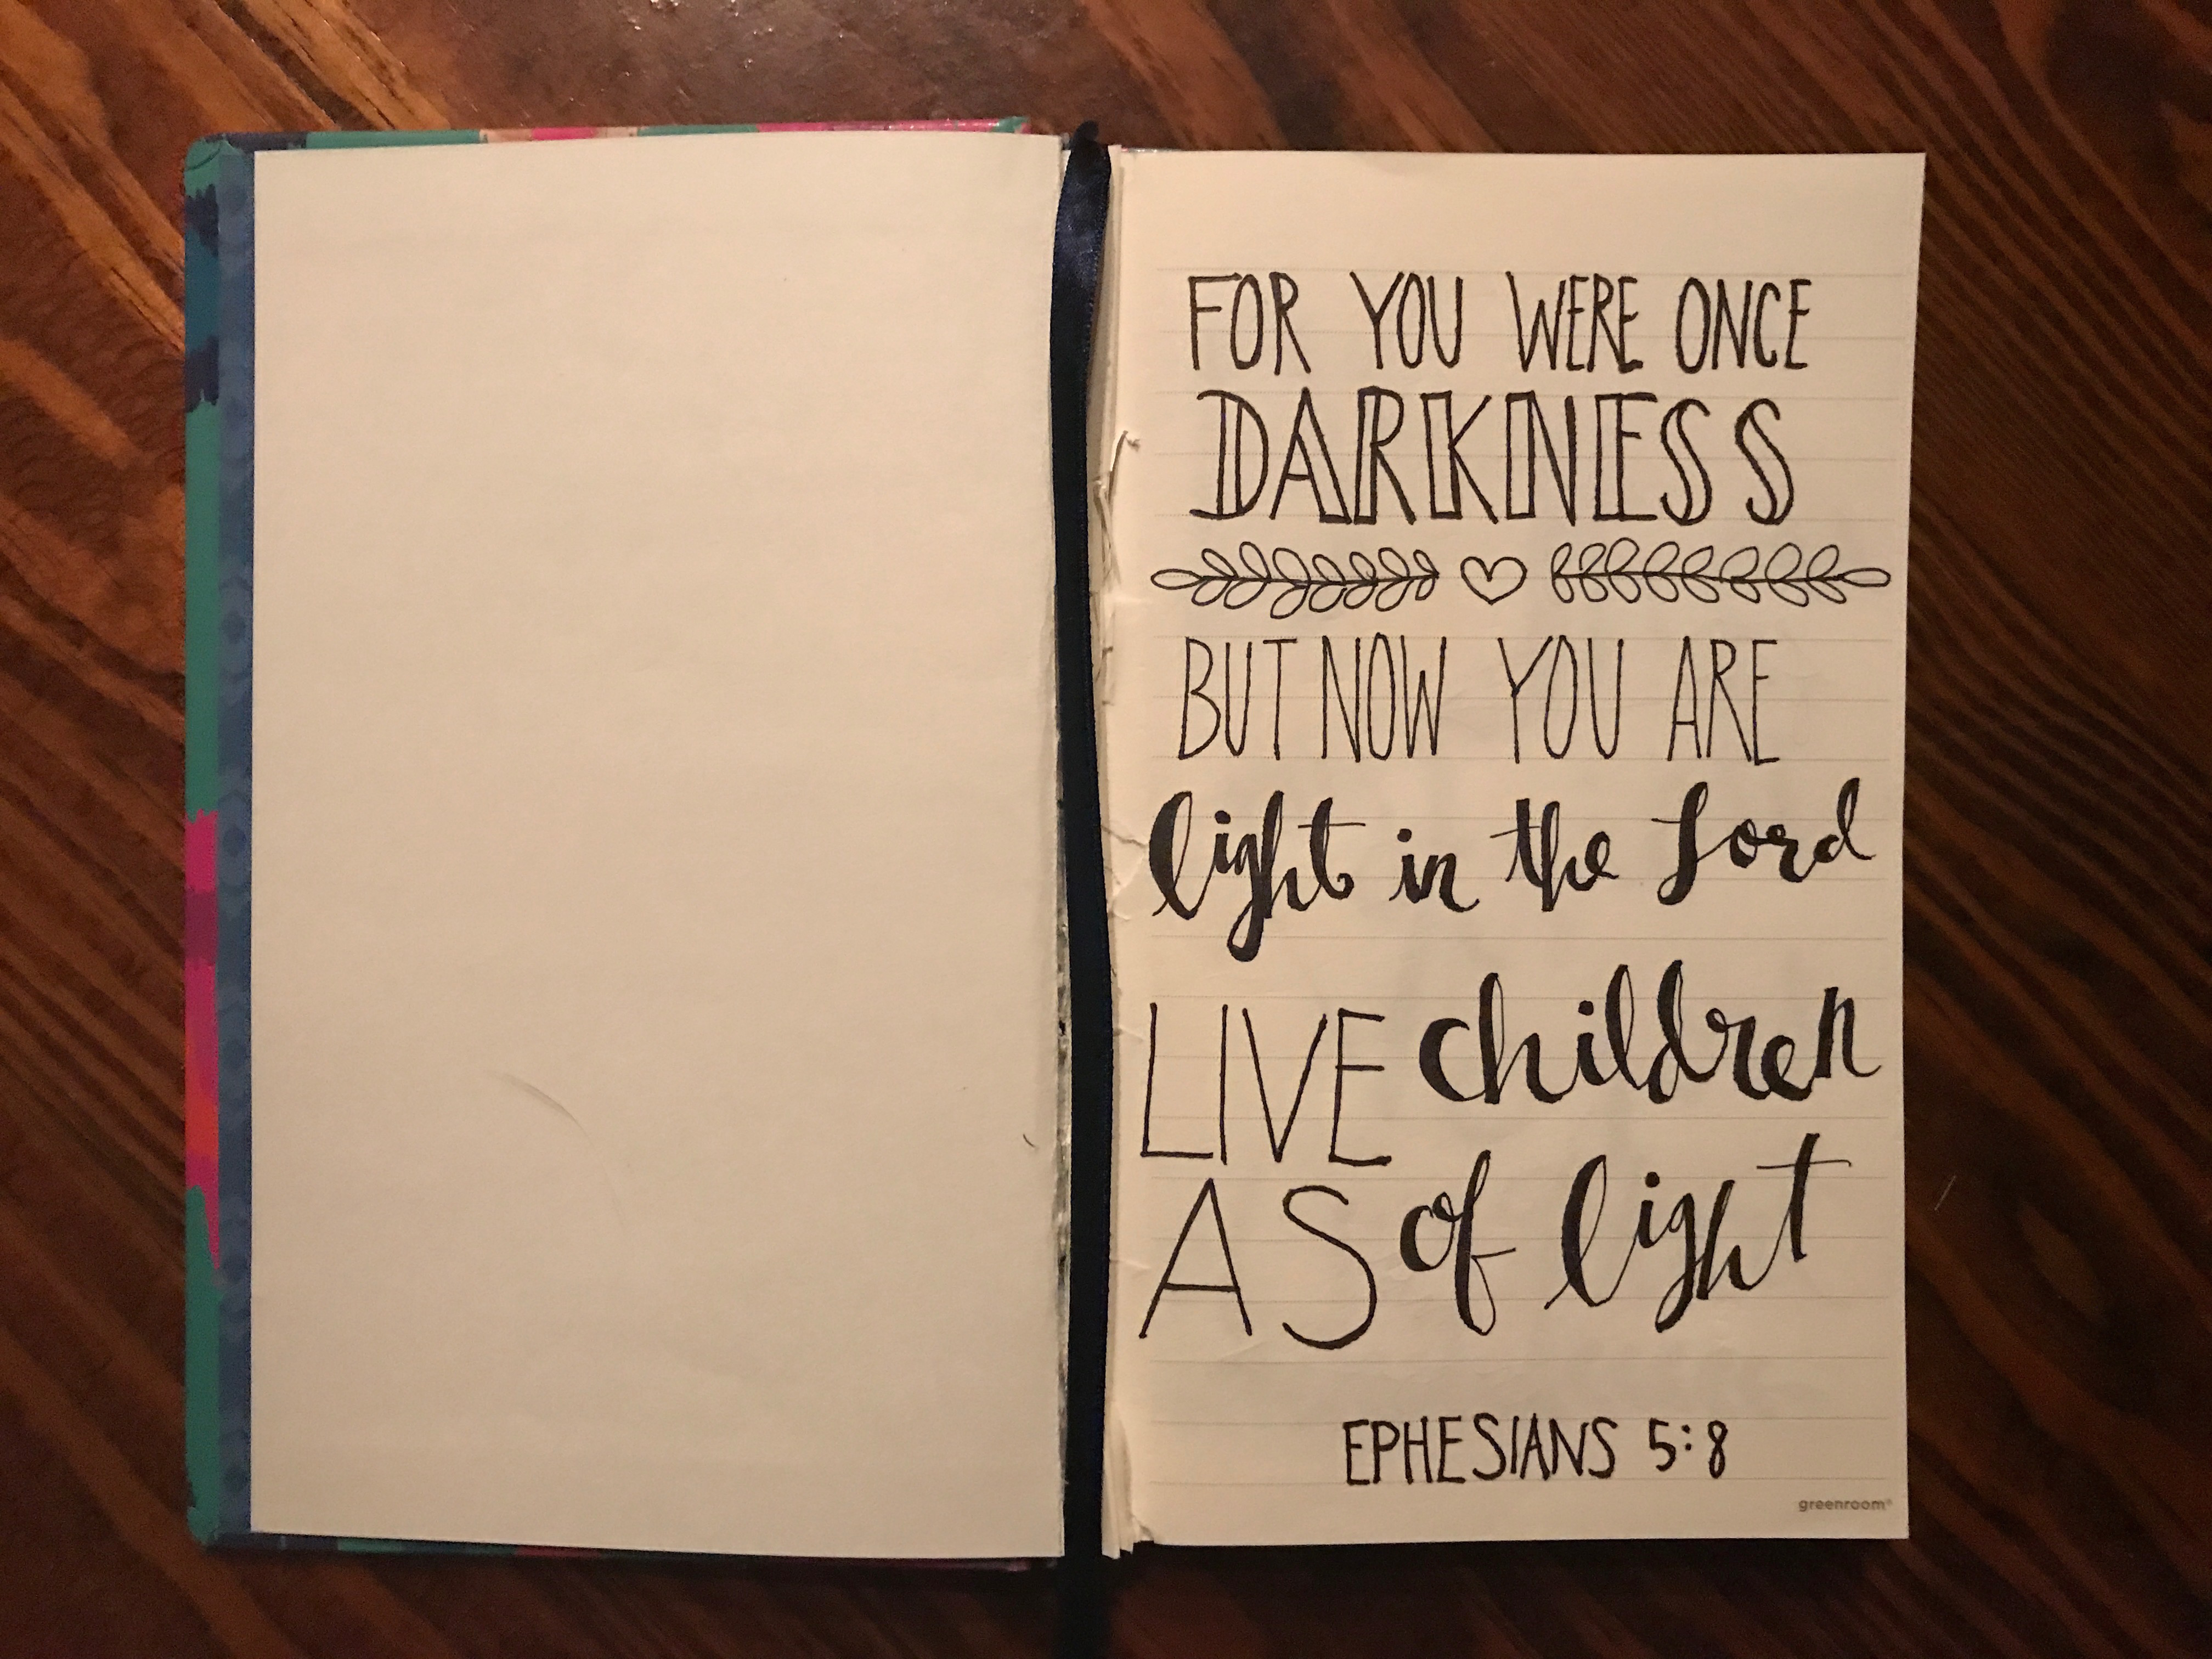 FOR YOU WERE ONCE
DARKNESS
BUT NOW YOU ARE
light in the Lord
LIVE children
AS of light
EPHESIANS 5:8
greenroom®